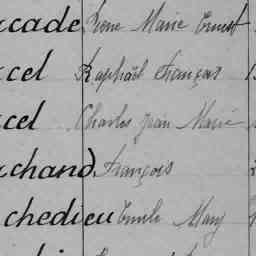 cade Pierre Marie Ernest
cel Raphaël François
cel Charles Jean Marie
chand François
chedieu Emile Mary